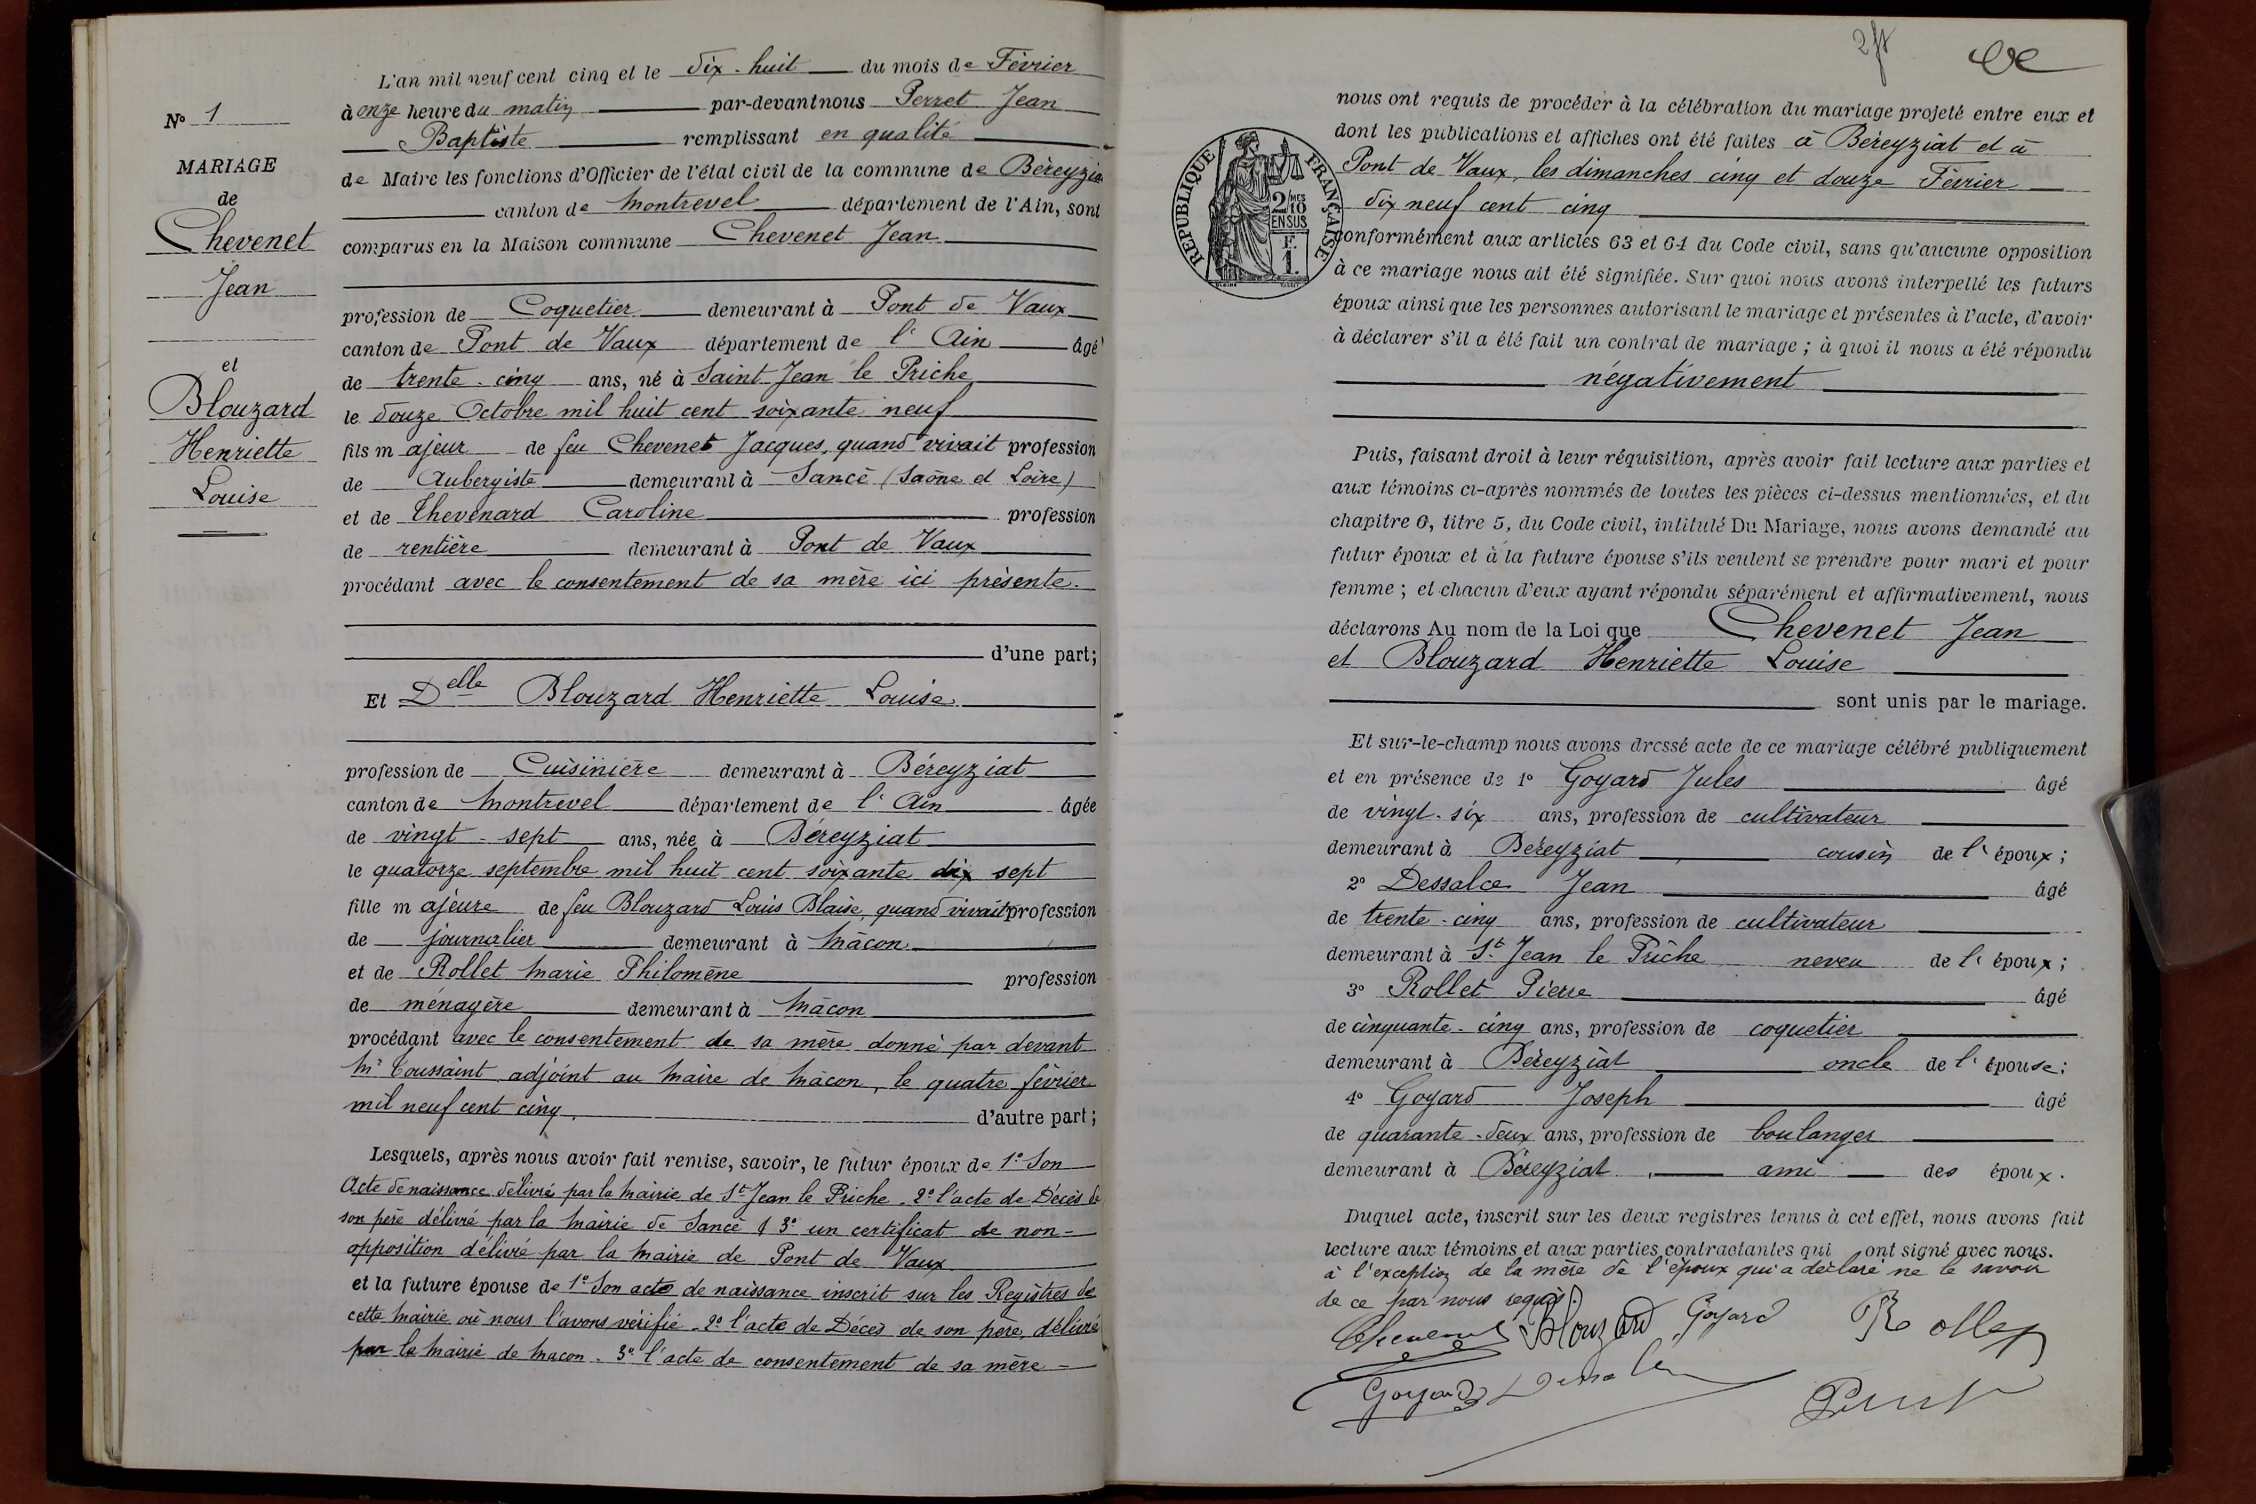 N° 1
MARIAGE
de
Chevenet
Jean
et
Blouzard
Henriette
Louise
L'an mil neuf cent cinq et le dix-huit du mois de Février
à onze heure du matin par-devant nous Perret Jean
Baptiste remplissant en qualité
de Maire les fonctions d'Officier de l'état civil de la commune de Béreyziat
canton de Montrevel département de l'Ain, sont
comparus en la Maison commune Chevenet Jean
profession de Coquetier demeurant à Pont de Vaux
canton de Pont de Vaux département de l'Ain âgé
de trente-cinq ans, né à Saint Jean le Priche
le douze Octobre mil huit cent soixante neuf
fils majeur de feu Chevenet Jacques, quand vivait profession
de Aubergiste demeurant à Sancé (Saône et Loire)
et de Thevenard Caroline profession
de rentière demeurant à Pont de Vaux
procédant avec le consentement de sa mère ici présente.
d'une part;
Et Delle Blouzard Henriette Louise
profession de Cuisinière demeurant à Béreyziat
canton de Montrevel département de l'Ain âgée
de vingt-sept ans, née à Béreyziat
le quatorze septembre mil huit cent soixante dix sept
fille majeure de feu Blouzard Louis Blaise, quand vivait profession
de journalier demeurant à Mâcon
et de Rollet Marie Philomène profession
de ménagère demeurant à Mâcon
procédant avec le consentement de sa mère donné par devant
Mr Toussaint adjoint au Maire de Mâcon, le quatre février
mil neuf cent cinq. d'autre part;
Lesquels, après nous avoir fait remise, savoir, le futur époux de 1° Son
Acte de naissance délivré par la Mairie de St Jean le Priche. 2° l'acte de Décès de
son père délivré par la Mairie de Sancé & 3° un certificat de non-
opposition délivré par la Mairie de Pont de Vaux
et la future épouse de 1° Son acte de naissance inscrit sur les Registres de
cette Mairie où nous l'avons vérifié. 2° l'acte de Décès de son père, délivré
par la Mairie de Macon. 3° l'acte de consentement de sa mère
RÉPUBLIQUE FRANÇAISE
2/10 MES
EN SUS
F.
1.
nous ont requis de procéder à la célébration du mariage projeté entre eux et
dont les publications et affiches ont été faites à Béreyziat et à
Pont de Vaux, les dimanches cinq et douze Février
dix neuf cent cinq
conformément aux articles 63 et 64 du Code civil, sans qu'aucune opposition
à ce mariage nous ait été signifiée. Sur quoi nous avons interpellé les futurs
époux ainsi que les personnes autorisant le mariage et présentes à l'acte, d'avoir
à déclarer s'il a été fait un contrat de mariage ; à quoi il nous a été répondu
négativement
Puis, faisant droit à leur réquisition, après avoir fait lecture aux parties et
aux témoins ci-après nommés de toutes les pièces ci-dessus mentionnées, et du
chapitre 6, titre 5, du Code civil, intitulé Du Mariage, nous avons demandé au
futur époux et à la future épouse s'ils veulent se prendre pour mari et pour
femme ; et chacun d'eux ayant répondu séparément et affirmativement, nous
déclarons Au nom de la Loi que Chevenet Jean
et Blouzard Henriette Louise
sont unis par le mariage.
Et sur-le-champ nous avons dressé acte de ce mariage célébré publiquement
et en présence de 1° Goyard Jules âgé
de vingt-six ans, profession de cultivateur
demeurant à Béreyziat cousin de l'époux ;
2° Dessalce Jean âgé
de trente-cinq ans, profession de cultivateur
demeurant à St Jean le Priche neveu de l'époux ;
3° Rollet Pierre âgé
de cinquante-cinq ans, profession de coquetier
demeurant à Béreyziat oncle de l'épouse ;
4° Goyard Joseph âgé
de quarante-deux ans, profession de boulanger
demeurant à Béreyziat ami des époux.
Duquel acte, inscrit sur les deux registres tenus à cet effet, nous avons fait
lecture aux témoins et aux parties contractantes qui ont signé avec nous.
à l'exception de la mère de l'époux qui a déclaré ne le savoir
de ce par nous requis.
Chevenet Blouzard Goyard Rollet
Goyard Perret